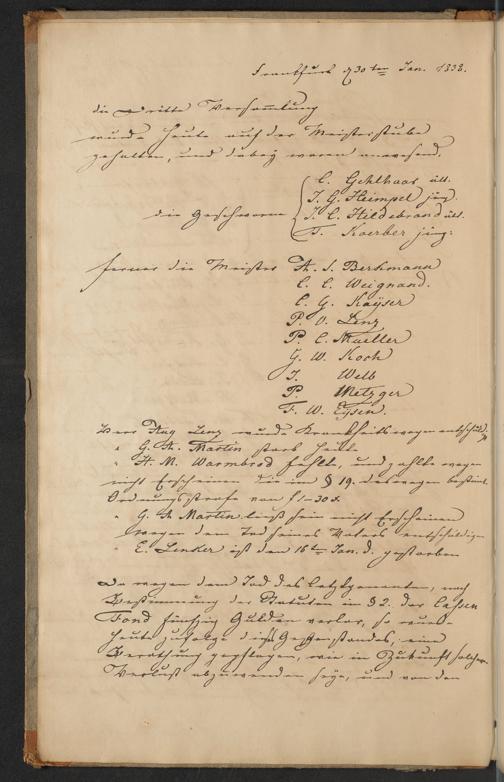 Frankfurt d 30ten Jan. 1838.
die dritte Versammlung
wurde heute auf der Meisterstube
gehalten, und dabey waren anwesend.
die Geschworne
C. Gehlhaar ält.
J. G. Heimpel jüng.
J. C. Hildebrand ält.
F. Koerber jüng:
ferner die Meister A. S. Berkmann
C. C. Weignand.
C. G. Kayser
P. O. Lenz
P. C. Mueller
G. W. Koch
J. Welb
P. Metzger
F. W. Eysen.
Herr Aug Lenz wurde Krankheitswegen entschuld.
" G. A. Martin starb heute
" H. M. Warmbrod fehlte, und zahlte wegen
nicht Erscheinen die im § 19. deswegen bestimt.
Ordnungsstrafe von f 1-30 x.
" G. A. Martin ließ sein nicht Erscheinen
wegen dem Tod seines Vaters entschuldigen
" E. Lenker ist den 16ten Jan. d. gestorben
Da wegen dem Tod des Letztgenanten, nach
Bestimmung der Statuten in § 2. der Cassen
Fond fünfzig Gulden verlor, so wurde
heute zufolge dieses Gegenstandes, eine
Berathung gepflogen, wie in Zukunft solcher
Verlust abzuwenden seye, und von den